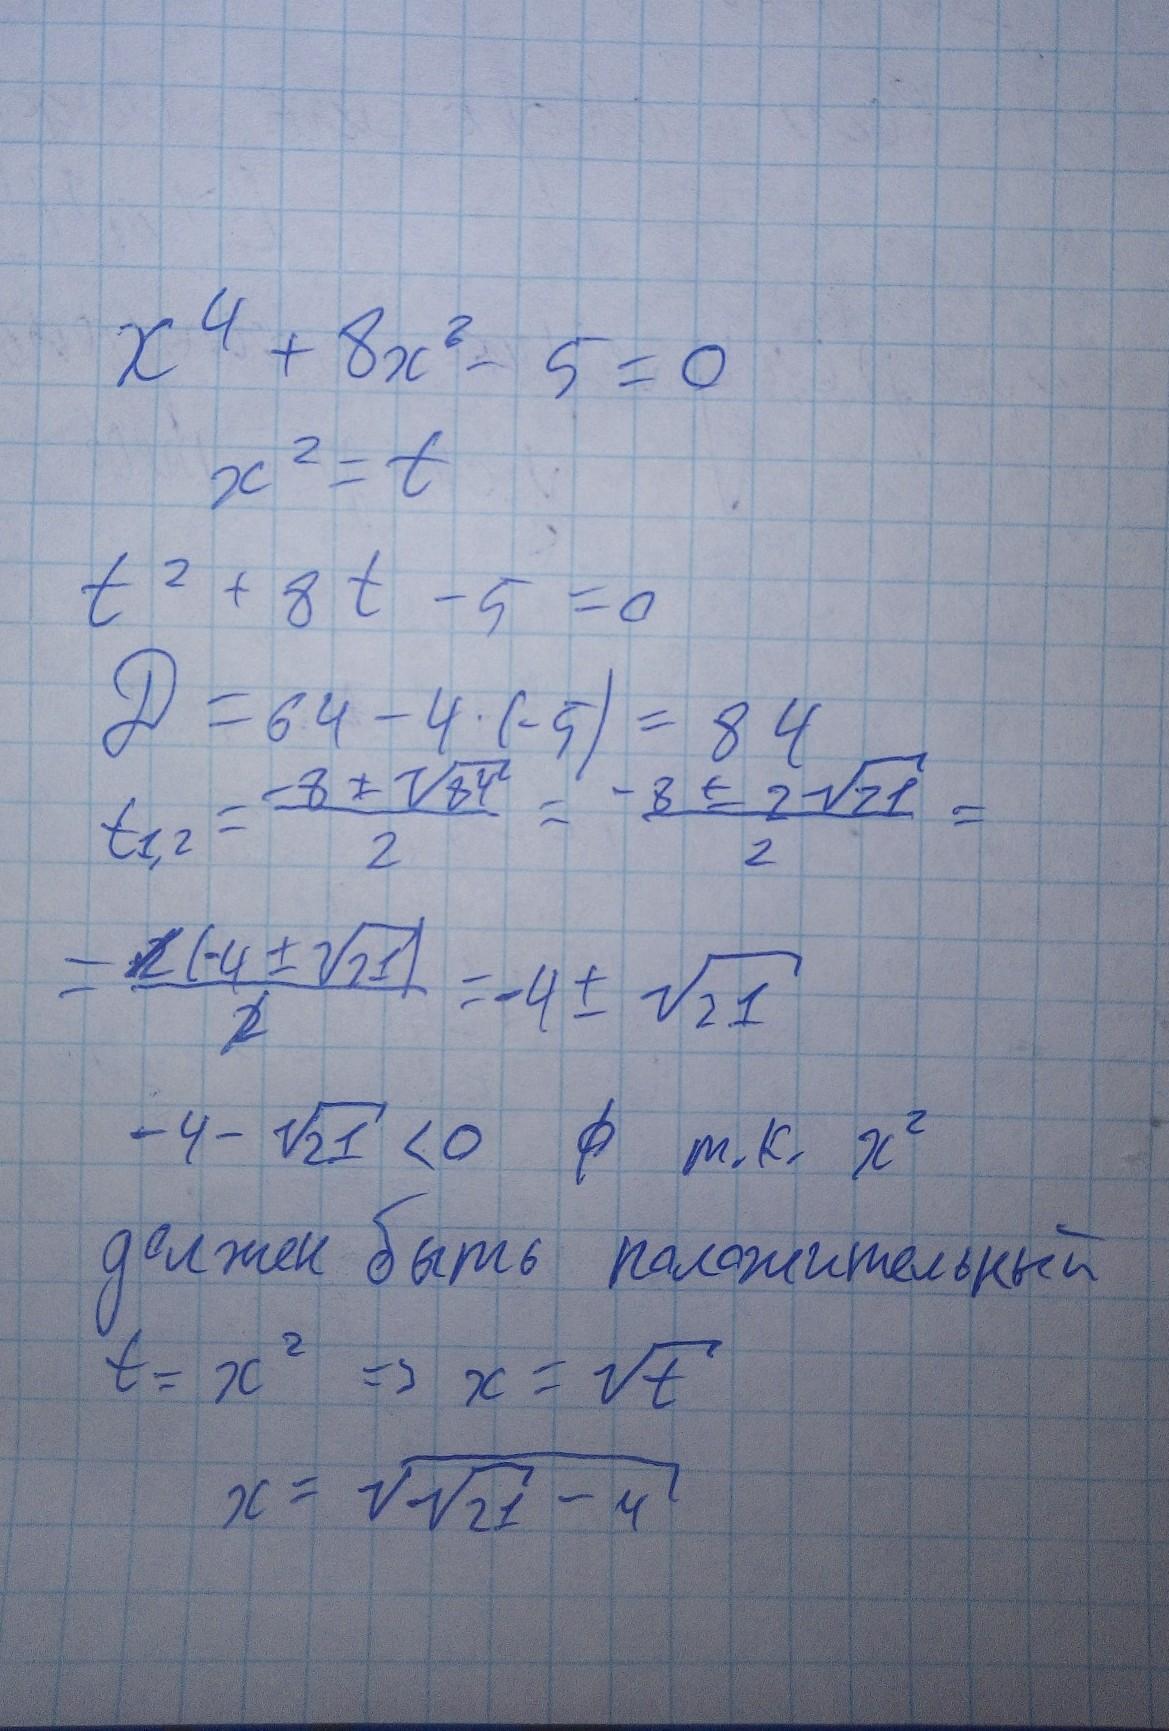 x⁴ + 8x² - 5 = 0
x² = t
t² + 8t - 5 = 0
D = 64 - 4·(-5) = 84
t₁,₂ = (-8 ± √84)/2 = (-8 ± 2√21)/2 =
= 2(-4 ± √21)/2 = -4 ± √21
-4 - √21 < 0 ∅ т.к. x²
должен быть положительный
t = x² => x = √t
x = √(√21 - 4)